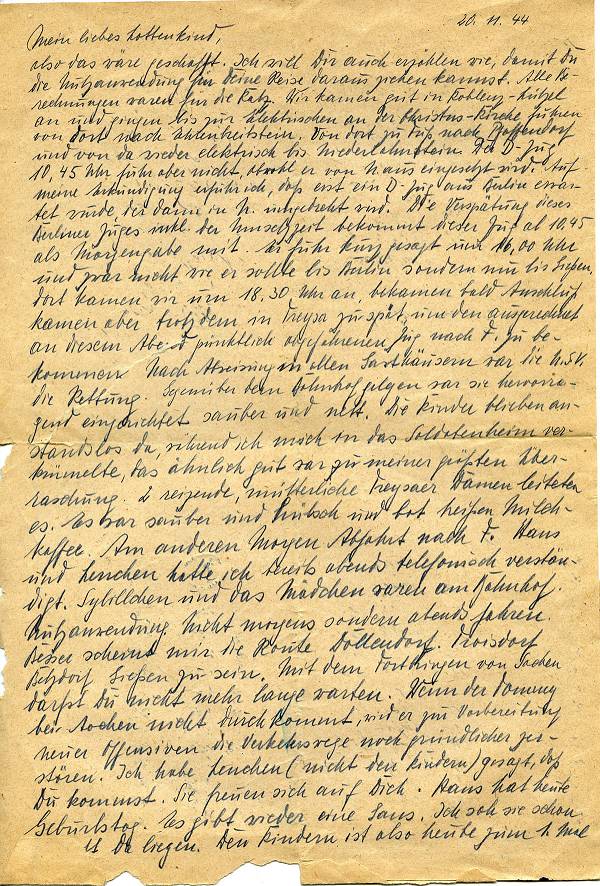 20. 11. 44
Mein liebes Lottenkind,
also das wäre geschafft. Ich will Dir auch erzählen wie, damit Du
die Nutzanwendung für deine Reise daraus ziehen kannst. Alle Be-
rechnungen waren für die Katz. Wir kamen gut in Koblenz-Lützel
an und gingen bis zur Elektrischen an der Christus-Kirche fuhren
von dort nach Ehrenbreitstein. Von dort zu Fuß nach Pfaffendorf
und von da wieder elektrisch bis Niederlahnstein. Der D-Zug
10,45 Uhr fuhr aber nicht, obwohl er von N aus eingesetzt wird. Auf
meine Erkundigung erfuhr ich, daß erst ein D-Zug aus Berlin erwar-
tet wurde, der dann in N. umgedreht wird. Die Verspätung dieses
Berliner Zuges inkl. der Umsetzzeit bekommt dieser Zug ab 10.45
als Morgengabe mit. Er fuhr kurz gesagt um 16,00 Uhr
und zwar nicht wie er sollte bis Berlin sondern nur bis Gießen,
dort kamen wir um 18.30 Uhr an, bekamen bald Anschluß
kamen aber trotzdem in Treysa zu spät, um den ausgerechnet
an diesem Abend pünktlich abgefahrenen Zug nach F. zu be-
kommen. Nach Abweisung in allen Gasthäusern war die N.S.V.
die Rettung. Gegenüber dem Bahnhof gelegen war sie hervorra-
gend eingerichtet sauber und nett. Die Kinder blieben an-
standslos da, während ich mich in das Soldatenheim ver-
krümelte, das ähnlich gut war zu meiner größten Über-
raschung. 2 reizende, mütterliche Treysaer Damen leiteten
es. Es war sauber und hübsch und bot heißen Milch-
kaffee. Am anderen Morgen Abfahrt nach F. Hans
und Lenchen hatte ich bereits abends telefonisch verstän-
digt. Sybillchen und das Mädchen waren am Bahnhof.
Nutzanwendung: Nicht morgens sondern abends fahren.
Besser scheint mir die Route Dollendorf. Troisdorf
Betzdorf Gießen zu sein. Mit dem Fortbringen von Sachen
darfst Du nicht mehr lange warten. Wenn der Tommy
bei Aachen nicht durchkommt, wird er zur Vorbereitung
neuer Offensiven die Verkehrswege noch gründlicher zer-
stören. Ich habe Lenchen (nicht den Kindern) gesagt, daß
Du kommst. Sie freuen sich auf Dich. Hans hat heute
Geburtstag. Es gibt wieder eine Gans. Ich sah sie schon
da liegen. Den Kindern ist also heute zum 1. Mal